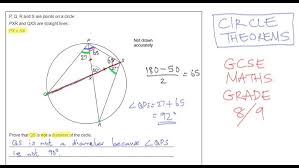 P, Q, R and S are points on a circle.
PXR and QXS are straight lines.
PX = SX
Not drawn
accurately
P
27
65
65
S
R
180-50
2
= 65
∠QPS = 27+65
= 92°
Prove that QS is not a diameter of the circle.
QS is not a diameter because ∠QPS
is not 90°
CIRCLE
THEOREMS
GCSE
MATHS
GRADE
8/9